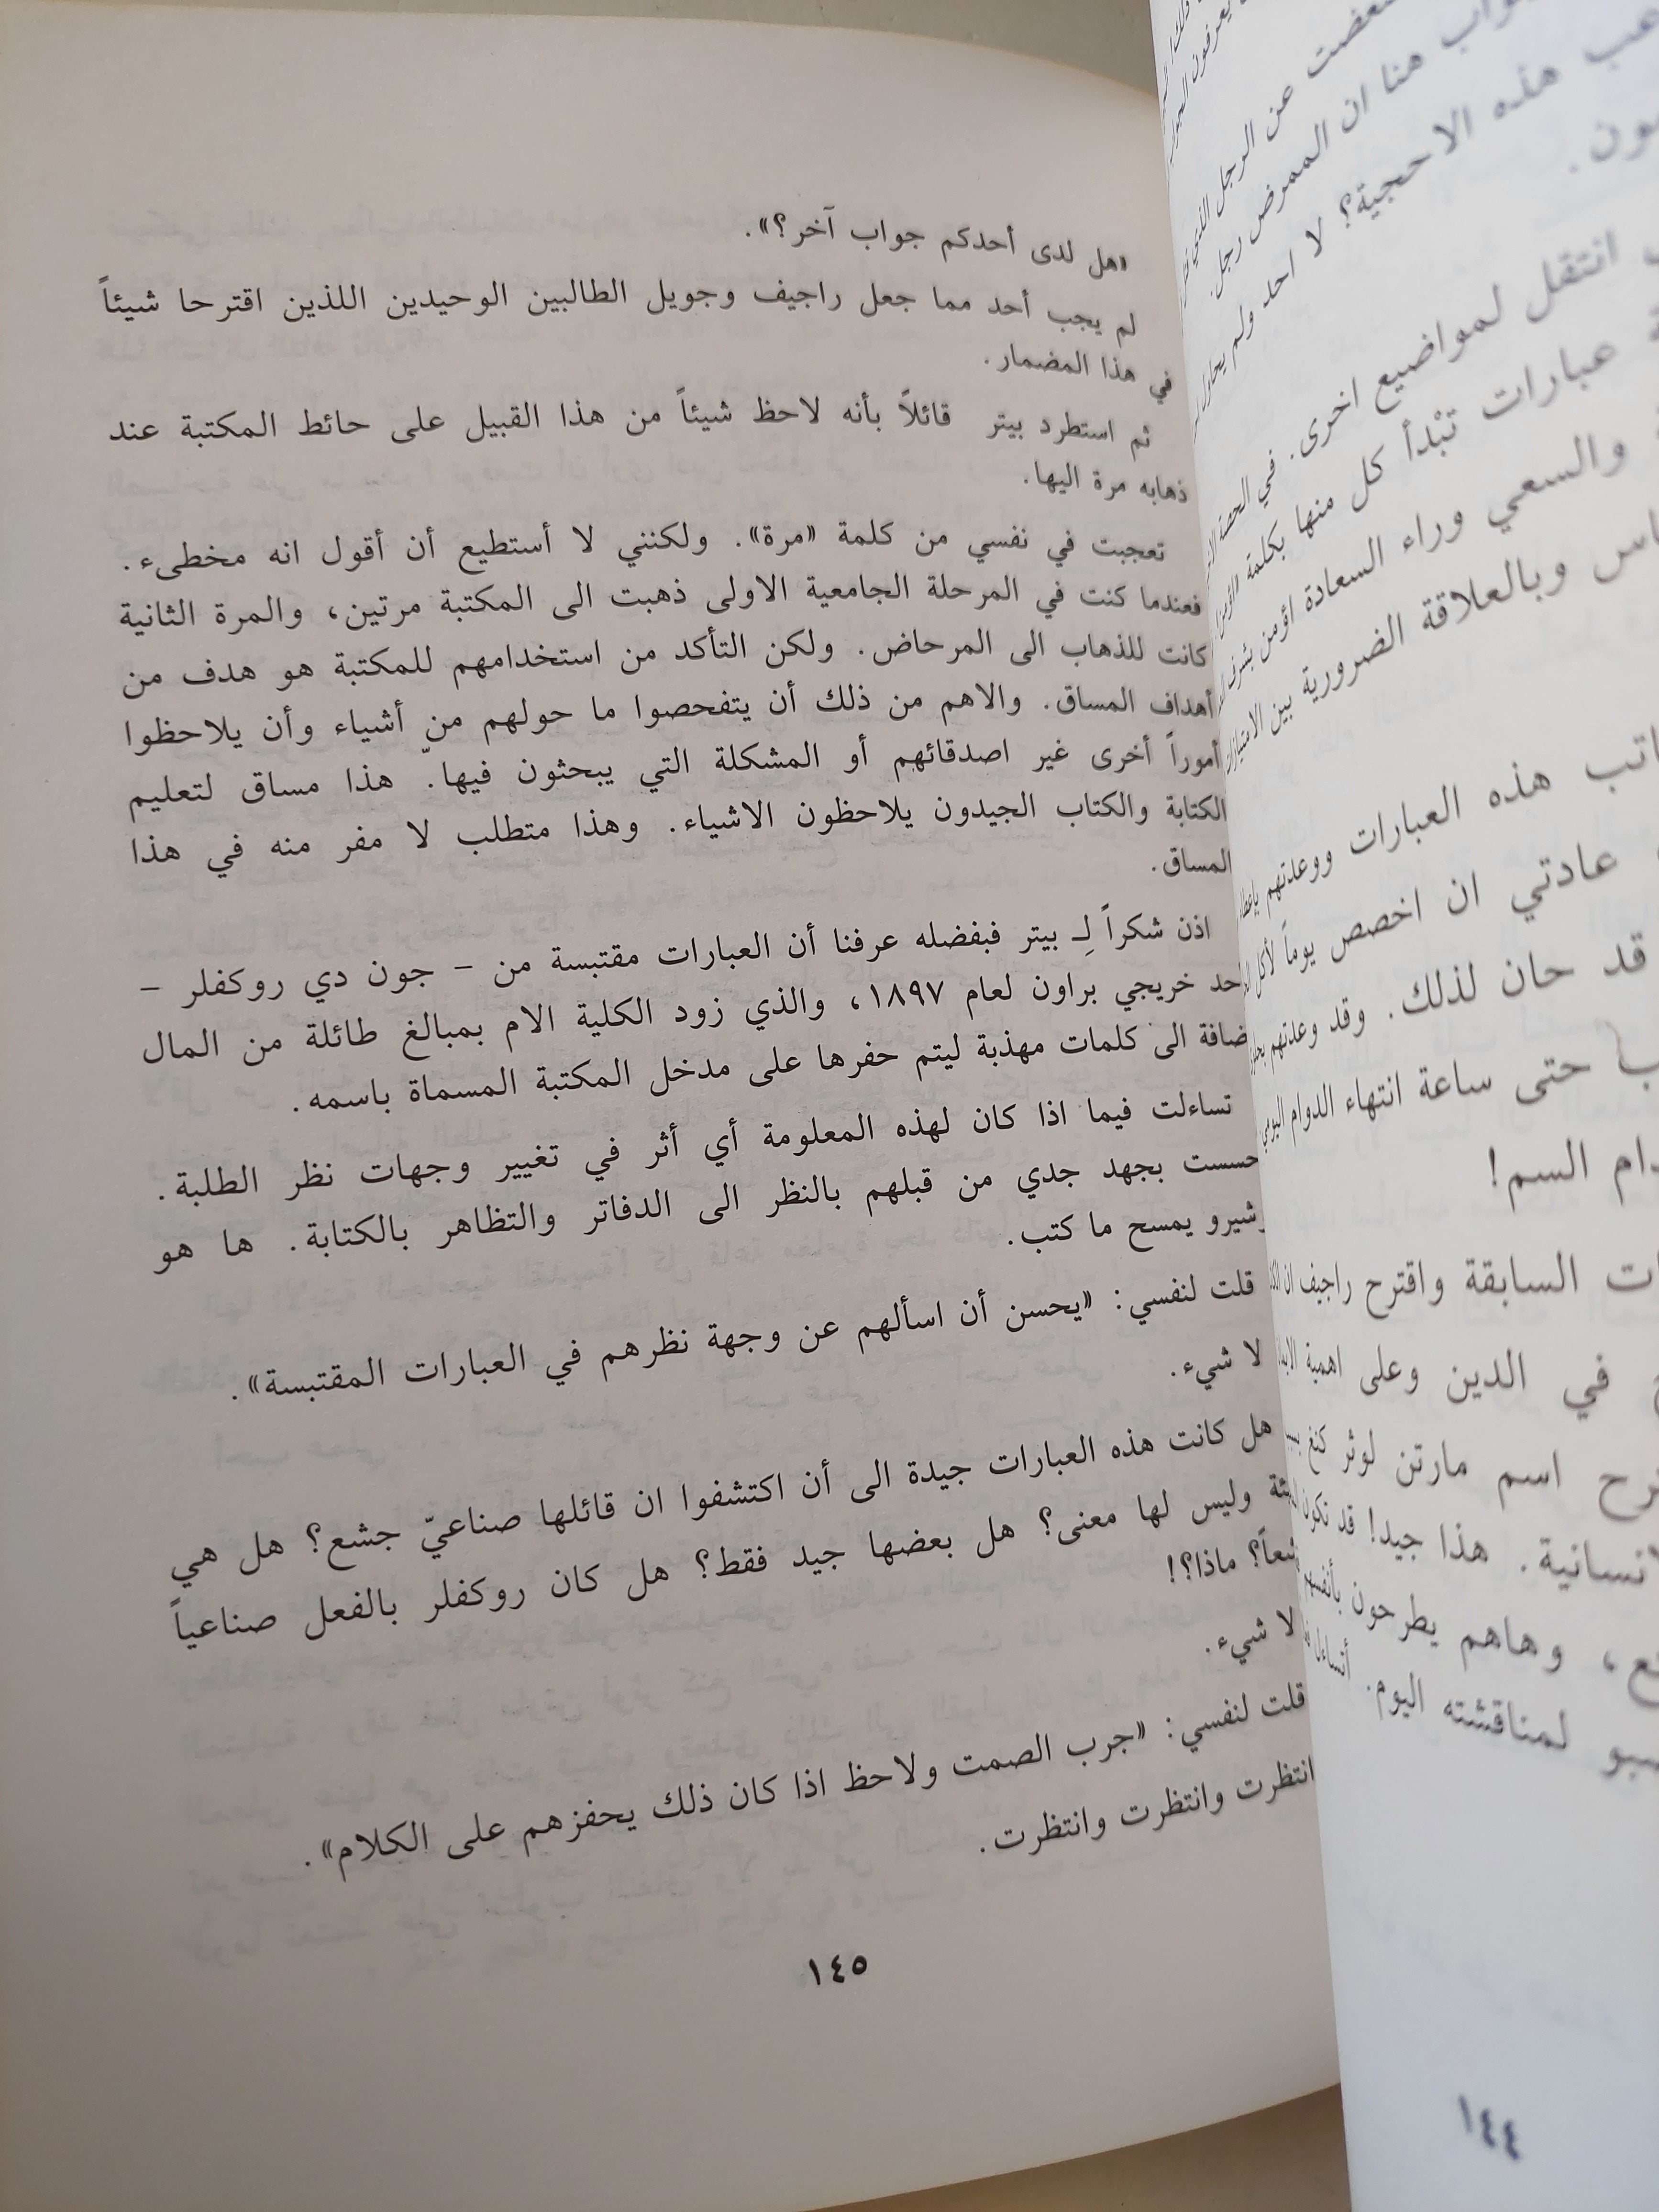 «هل لدى أحدكم جواب آخر؟».
لم يجب أحد مما جعل راجيف وجويل الطالبين الوحيدين اللذين اقترحا شيئاً
في هذا المضمار.
ثم استطرد بيتر قائلاً بأنه لاحظ شيئاً من هذا القبيل على حائط المكتبة عند
ذهابه مرة اليها.
تعجبت في نفسي من كلمة «مرة». ولكنني لا أستطيع أن أقول انه مخطىء.
فعندما كنت في المرحلة الجامعية الاولى ذهبت الى المكتبة مرتين، والمرة الثانية
كانت للذهاب الى المرحاض. ولكن التأكد من استخدامهم للمكتبة هو هدف من
أهداف المساق. والاهم من ذلك أن يتفحصوا ما حولهم من أشياء وأن يلاحظوا
أموراً أخرى غير اصدقائهم أو المشكلة التي يبحثون فيها. هذا مساق لتعليم
الكتابة والكتاب الجيدون يلاحظون الاشياء. وهذا متطلب لا مفر منه في هذا
المساق.
اذن شكراً لِـ بيتر فبفضله عرفنا أن العبارات مقتبسة من – جون دي روكفلر –
حد خريجي براون لعام ١٨٩٧، والذي زود الكلية الام بمبالغ طائلة من المال
ضافة الى كلمات مهذبة ليتم حفرها على مدخل المكتبة المسماة باسمه.
تساءلت فيما اذا كان لهذه المعلومة أي أثر في تغيير وجهات نظر الطلبة.
حسست بجهد جدي من قبلهم بالنظر الى الدفاتر والتظاهر بالكتابة. ها هو
شيرو يمسح ما كتب.
قلت لنفسي: «يحسن أن اسألهم عن وجهة نظرهم في العبارات المقتبسة».
لا شيء.
هل كانت هذه العبارات جيدة الى أن اكتشفوا ان قائلها صناعيّ جشع؟ هل هي
ئة وليس لها معنى؟ هل بعضها جيد فقط؟ هل كان روكفلر بالفعل صناعياً
شعاً؟ ماذا؟!
لا شيء.
قلت لنفسي: «جرب الصمت ولاحظ اذا كان ذلك يحفزهم على الكلام».
انتظرت وانتظرت وانتظرت.
١٤٥
عن الرجل الذي
هنا ان الممرض رجل.
هذه الاحجية؟ لا احد ولم يحاول
انتقل لمواضيع اخرى. في الحصة
عبارات تبْدأ كل منها بكلمة
والسعي وراء السعادة اؤمن بشرف
وبالعلاقة الضرورية بين
هذه العبارات ووعدتهم
عادتي ان اخصص يوماً لأكل
قد حان لذلك. وقد وعدتهم
حتى ساعة انتهاء الدوام اليومي
السم!
السابقة واقترح راجيف ان
في الدين وعلى اهمية
اسم مارتن لوثر كنغ
هذا جيد! قد تكون
وهاهم يطرحون بأنفسهم
لمناقشته اليوم. أتساءل
١٤٤